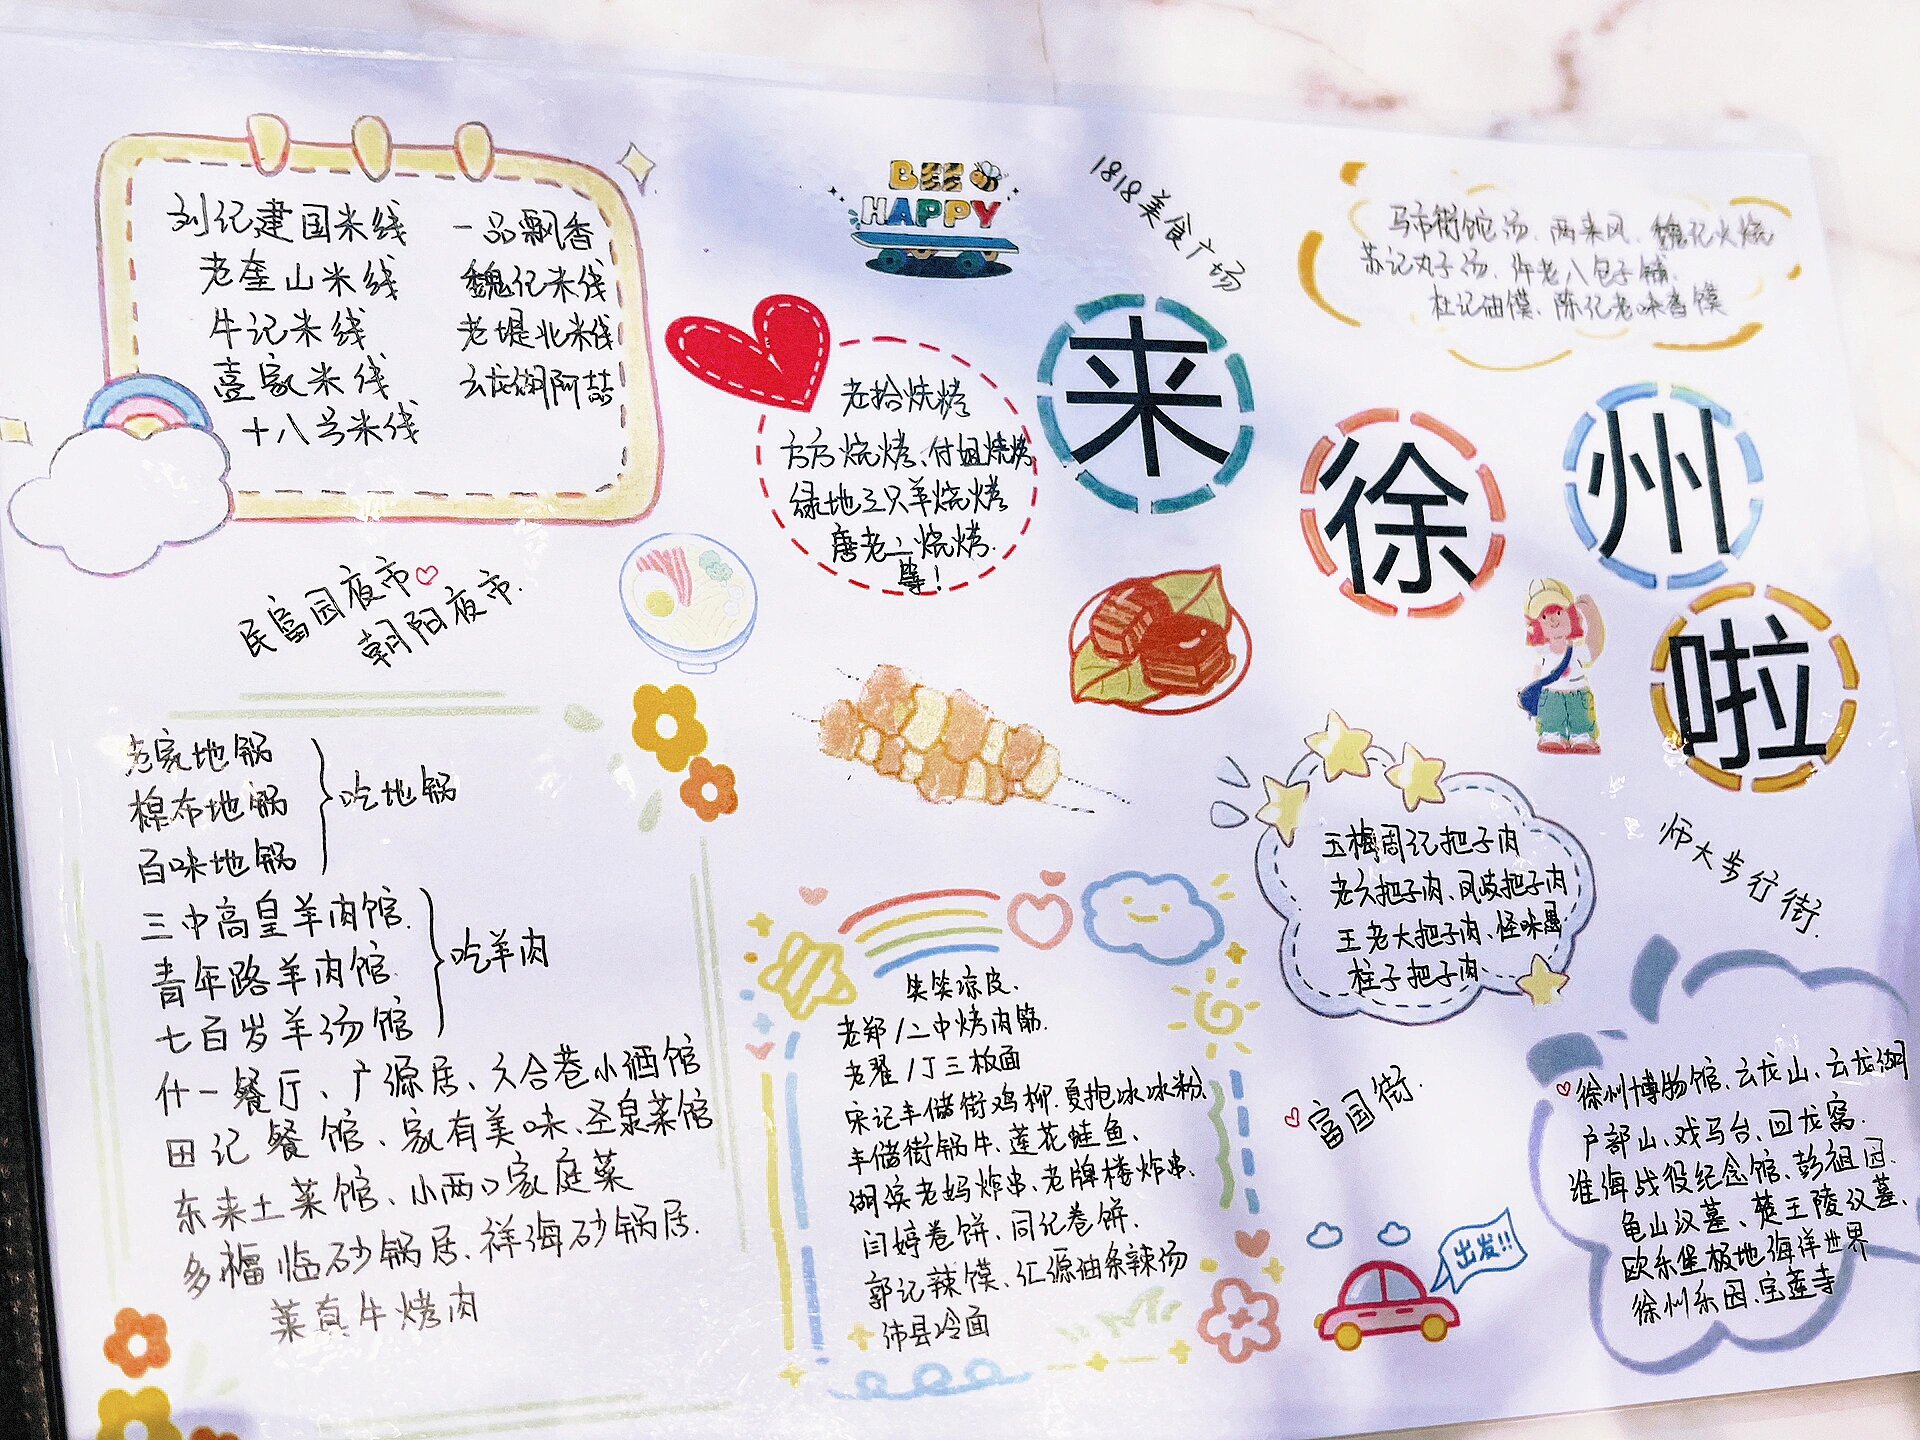 刘记建国米线
老奎山米线
牛记米线
喜家米线
十八号米线
一品飘香
魏记米线
老堤北米线
云龙湖阿喆
BEE
HAPPY
1818美食广场
马市街饣它汤、两来风、魏记火烧
苏记丸子汤、许老八包子铺
杜记油馍、陈记老味香馍
来
徐
州
啦
老拾烧烤
方方烧烤、付姐烧烤
绿地三只羊烧烤
唐老二烧烤.
等!
民富园夜市
朝阳夜市.
老家地锅
棉布地锅
百味地锅
吃地锅
三中高皇羊肉馆
青年路羊肉馆
七百岁羊汤馆
吃羊肉
什一餐厅、广源居、六合巷小酒馆
田记餐馆、家有美味、圣泉菜馆
东来土菜馆、小两口家庭菜
多福临砂锅居、祥海砂锅居.
莱真牛烤肉
笑笑凉皮.
老郑/二中烤肉筋.
老翟/丁三板面
宋记丰储街鸡柳.夏抱冰冰粉
丰储街锅牛、莲花鲑鱼、
湖滨老妈炸串、老牌楼炸串、
闫婷卷饼、同记卷饼.
郭记辣馍、汇源油条辣汤
沛县冷面
玉梅周记把子肉
老六把子肉、凤岐把子肉
王老大把子肉、怪味
柱子把子肉
师大步行街.
富国街.
出发!!
徐州博物馆、云龙山、云龙湖
户部山、戏马台、回龙窝.
淮海战役纪念馆、彭祖园.
龟山汉墓、楚王陵汉墓、
欧乐堡极地海洋世界
徐州乐园、宝莲寺